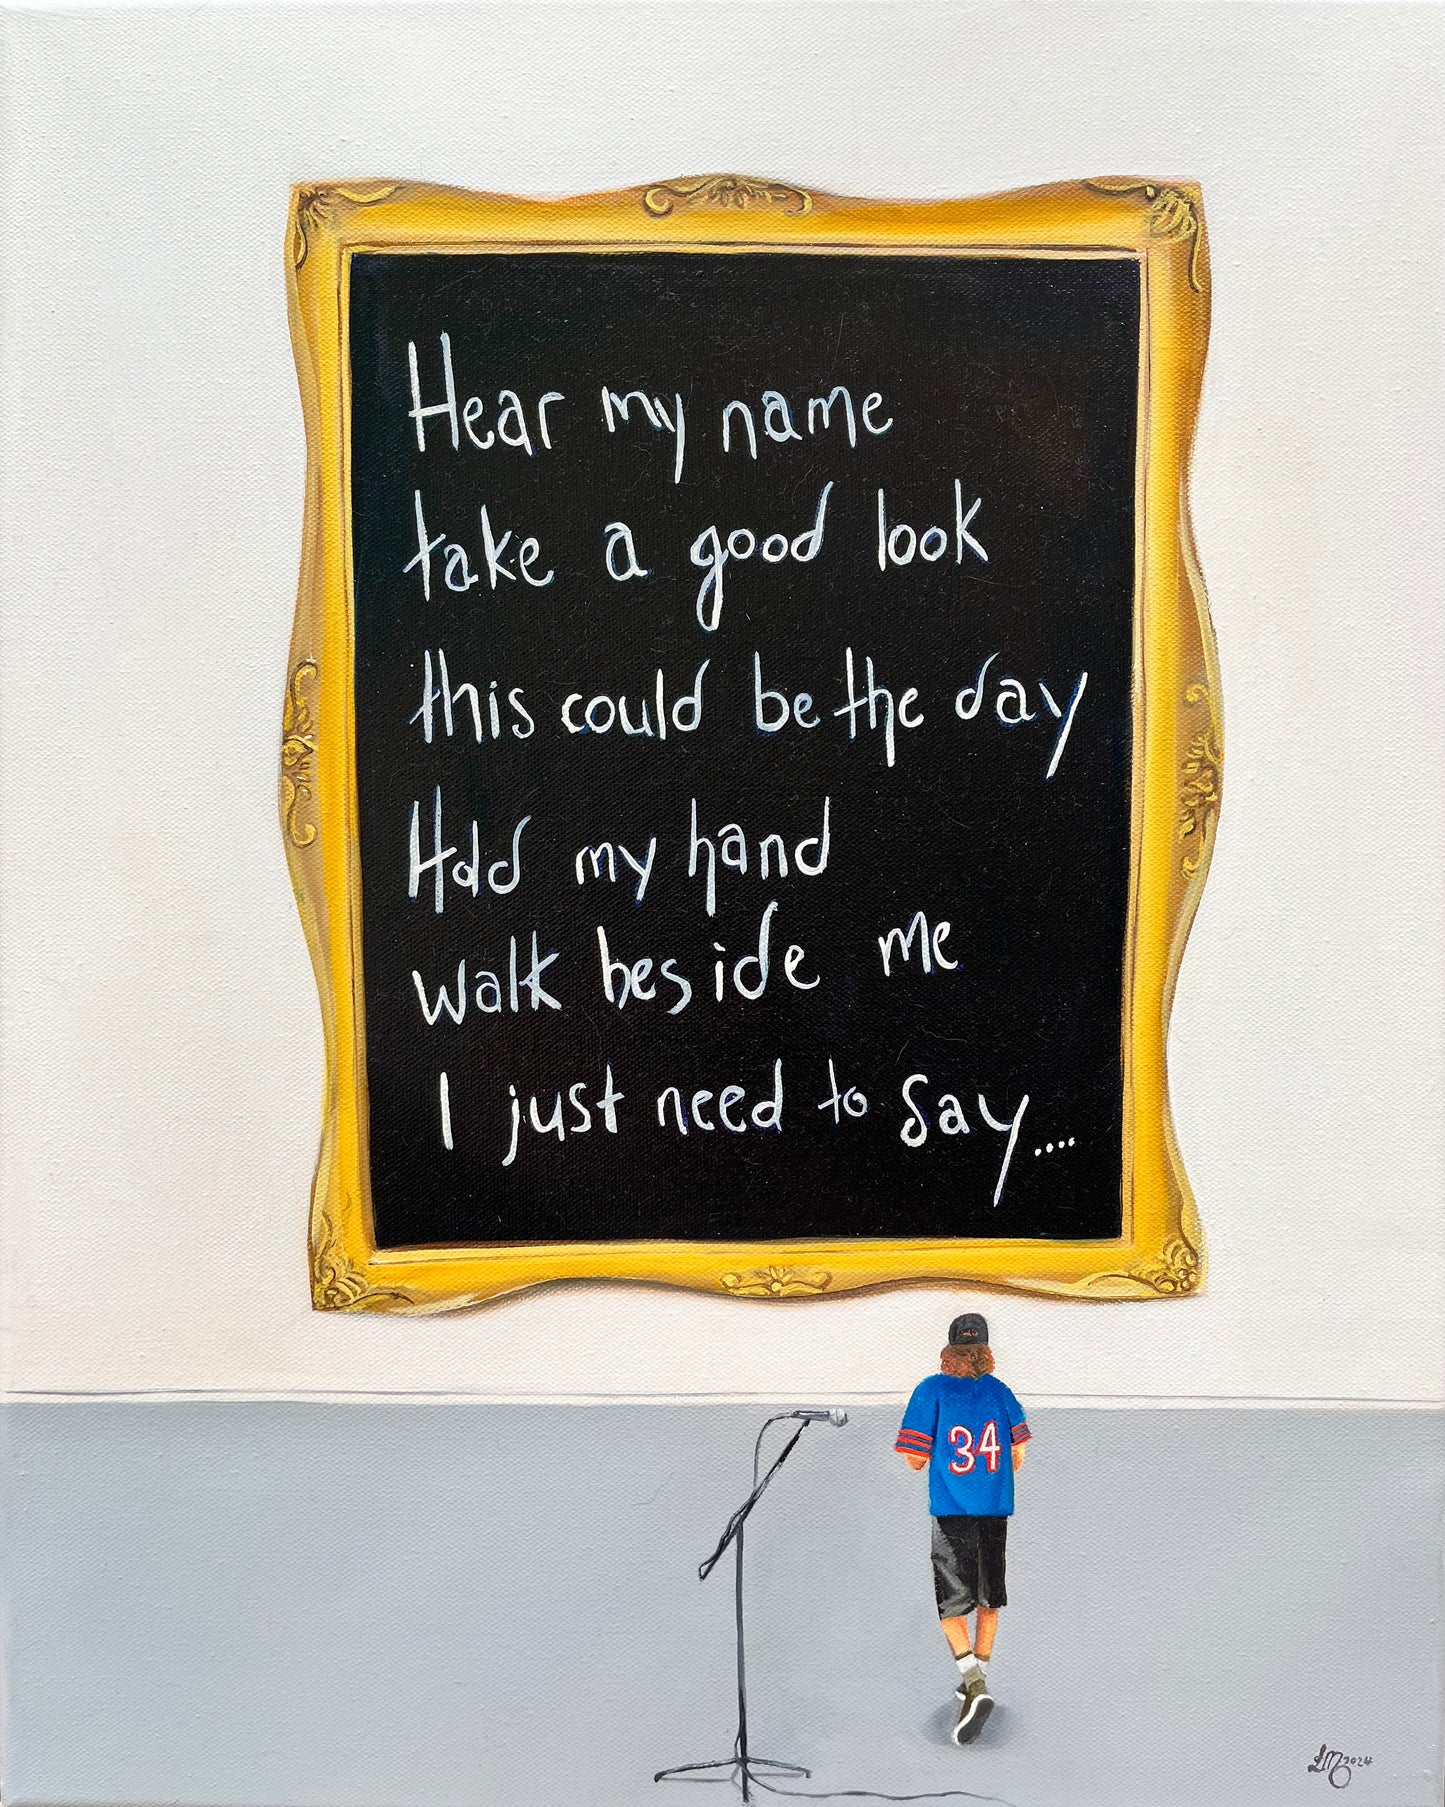 Hear my name
take a good look
this could be the day
Hold my hand
walk beside me
I just need to say....
34
LM 2024